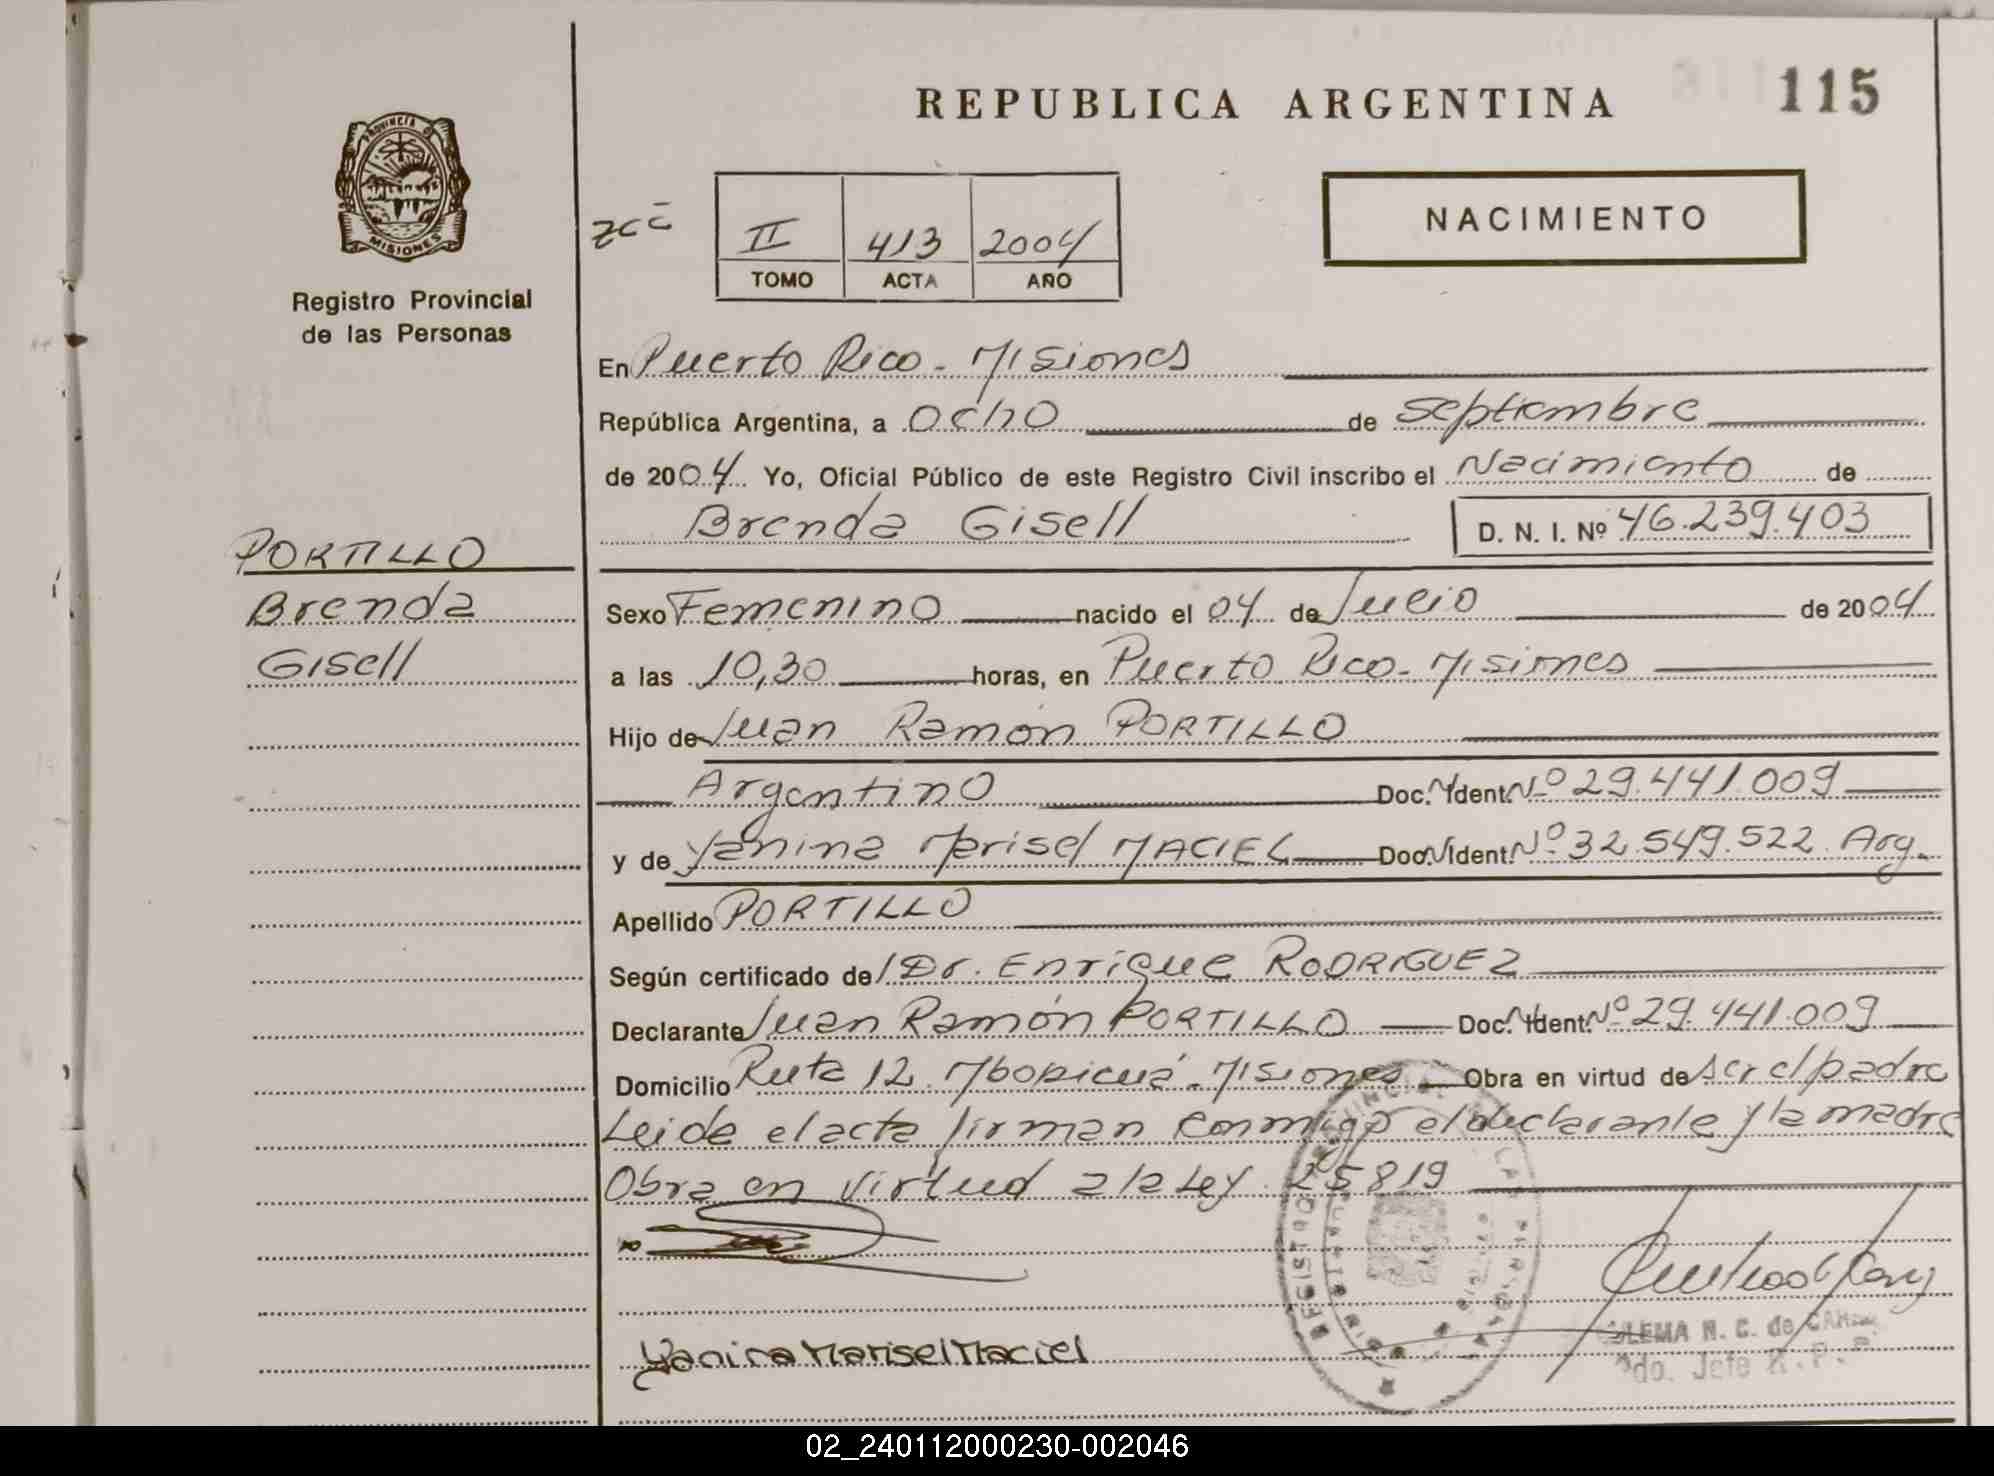 REPUBLICA ARGENTINA
115
PROVINCIA DE
MISIONES
Registro Provincial
de las Personas
II 413 2004
TOMO ACTA AÑO
NACIMIENTO
En Puerto Rico - Misiones
República Argentina, a ocho de Septiembre
de 2004 Yo, Oficial Público de este Registro Civil inscribo el Nacimiento de
Brenda Gisell D. N. I. Nº 46.239.403
PORTILLO
Brenda
Gisell
Sexo Femenino nacido el 04 de Julio de 2004
a las 10,30 horas, en Puerto Rico - Misiones
Hijo de Juan Ramón PORTILLO
Argentino Doc. Ident. Nº 29.441.009
y de Yanina Marisel MACIEL Doc. Ident. Nº 32.549.522 Arg.
Apellido PORTILLO
Según certificado de Dr. Enrique RODRIGUEZ
Declarante Juan Ramón PORTILLO Doc. Ident. Nº 29.441.009
Domicilio Ruta 12 Mbopicuá - Misiones Obra en virtud de ser el padre
Leida el acta firman conmigo el declarante y la madre
Obra en virtud a la Ley 25819
Yanina Marisel Maciel
N. C. de
Jefe R. P. P.
02_240112000230-002046